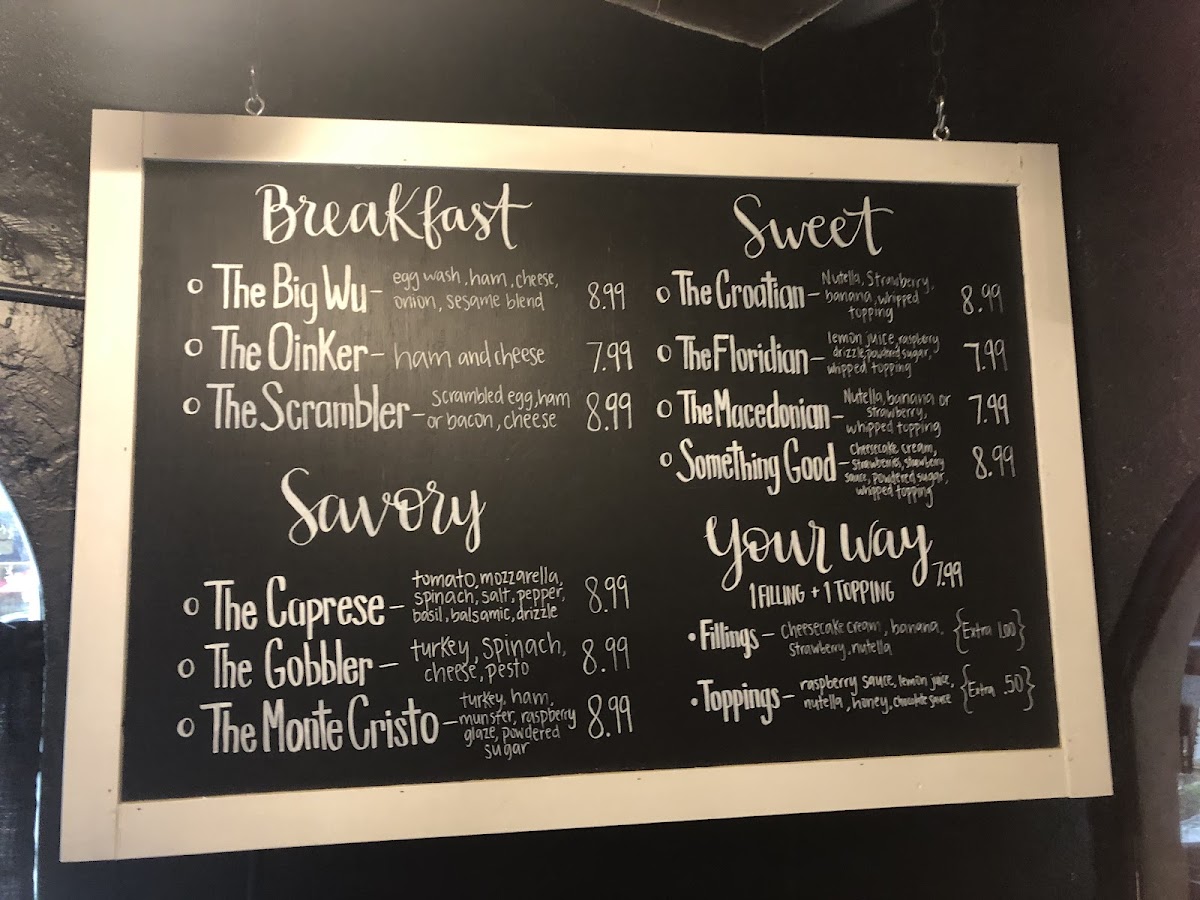 Breakfast
The Big Wu- egg wash, ham, cheese,
onion, sesame blend 8.99
The Oinker- ham and cheese 7.99
The Scrambler- scrambled egg, ham
or bacon, cheese 8.99
Savory
The Caprese- tomato, mozzarella,
spinach, salt, pepper,
basil, balsamic, drizzle 8.99
The Gobbler- turkey, spinach,
cheese, pesto 8.99
The Monte Cristo- turkey, ham,
munster, raspberry
glaze, powdered
sugar 8.99
Sweet
The Croatian- Nutella, Strawberry,
banana, whipped
topping 8.99
The Floridian- lemon juice, raspberry
drizzle, powdered sugar,
whipped topping 7.99
The Macedonian- Nutella, banana or
strawberry,
whipped topping 7.99
Something Good- cheesecake cream,
strawberries, strawberry
sauce, powdered sugar,
whipped topping 8.99
Your Way
1 FILLING + 1 TOPPING 7.99
• Fillings- cheesecake cream, banana,
strawberry, nutella {Extra 1.00}
• Toppings- raspberry sauce, lemon juice,
nutella, honey, chocolate sauce {Extra .50}